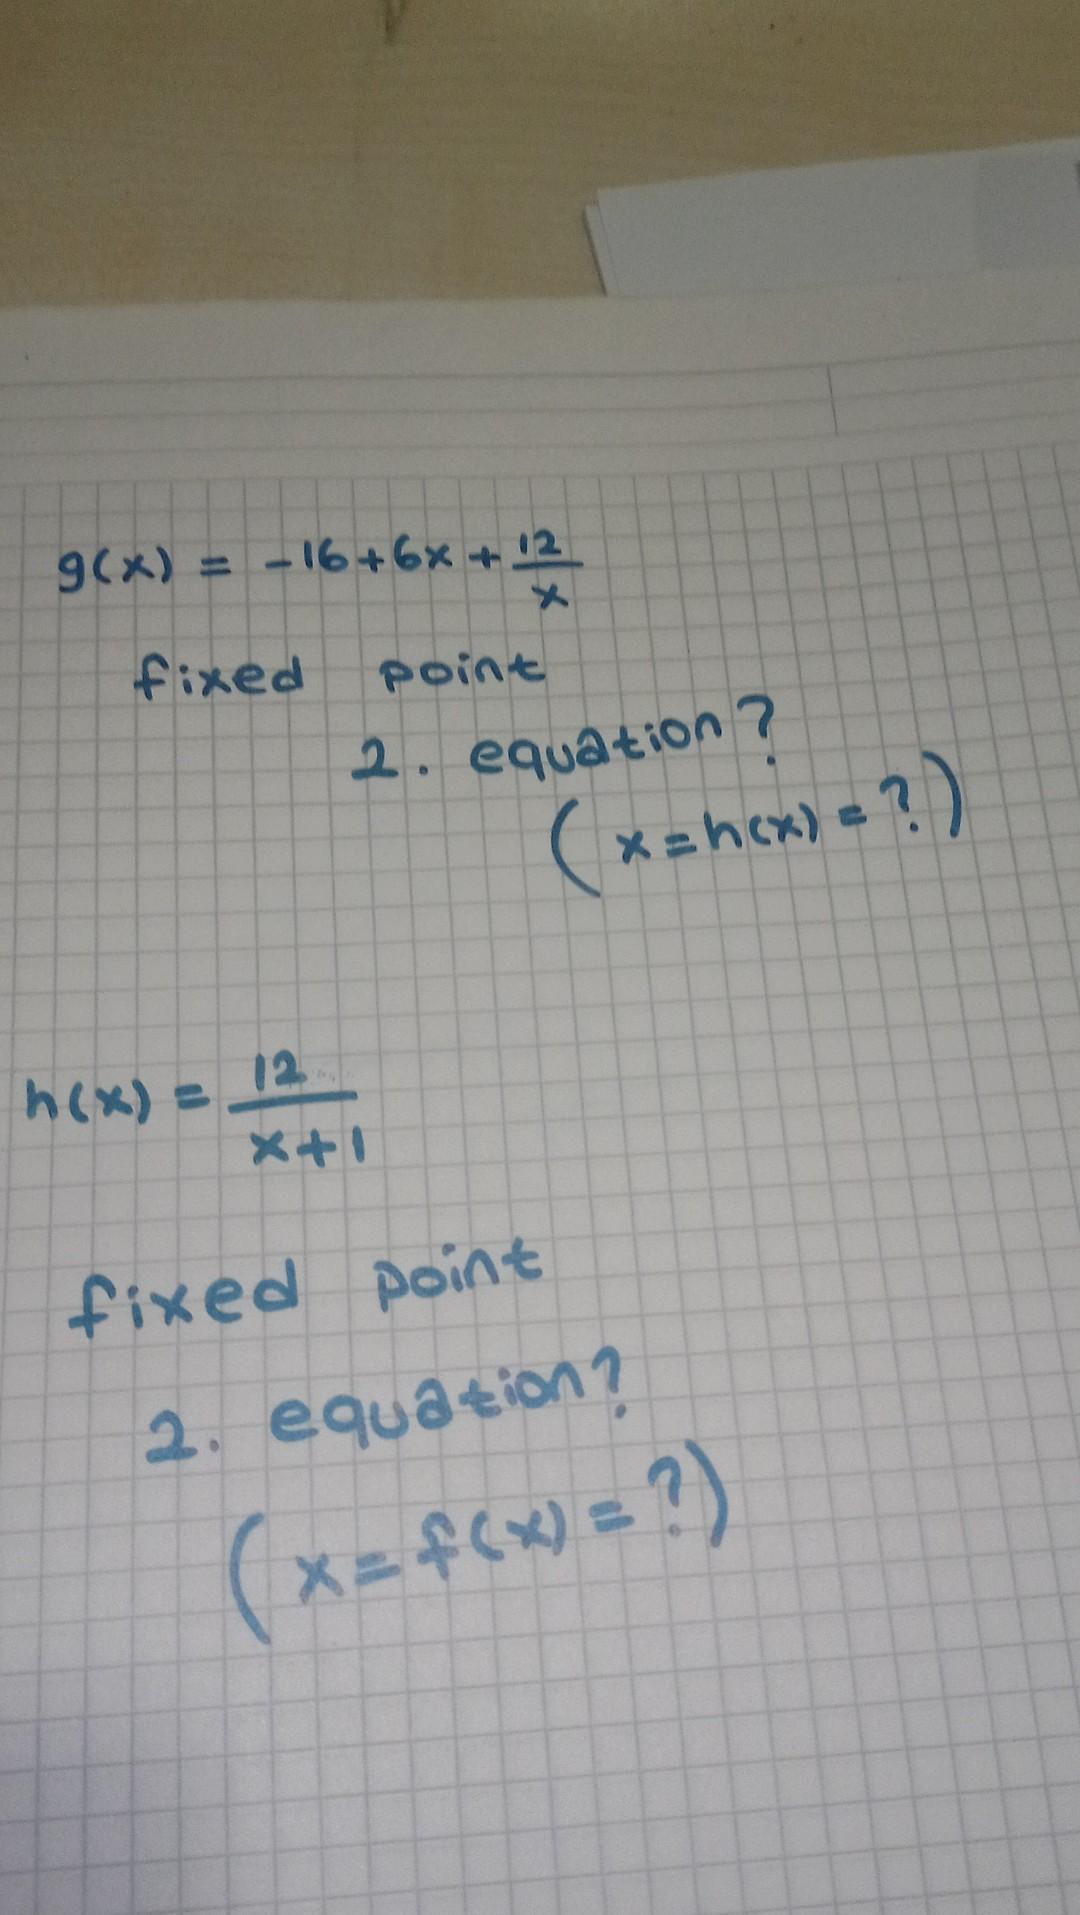 g(x) = -16+6x+12/x
fixed point
2. equation?
(x=h(x)=?)
h(x) = 12/x+1
fixed point
2. equation?
(x=f(x)=?)